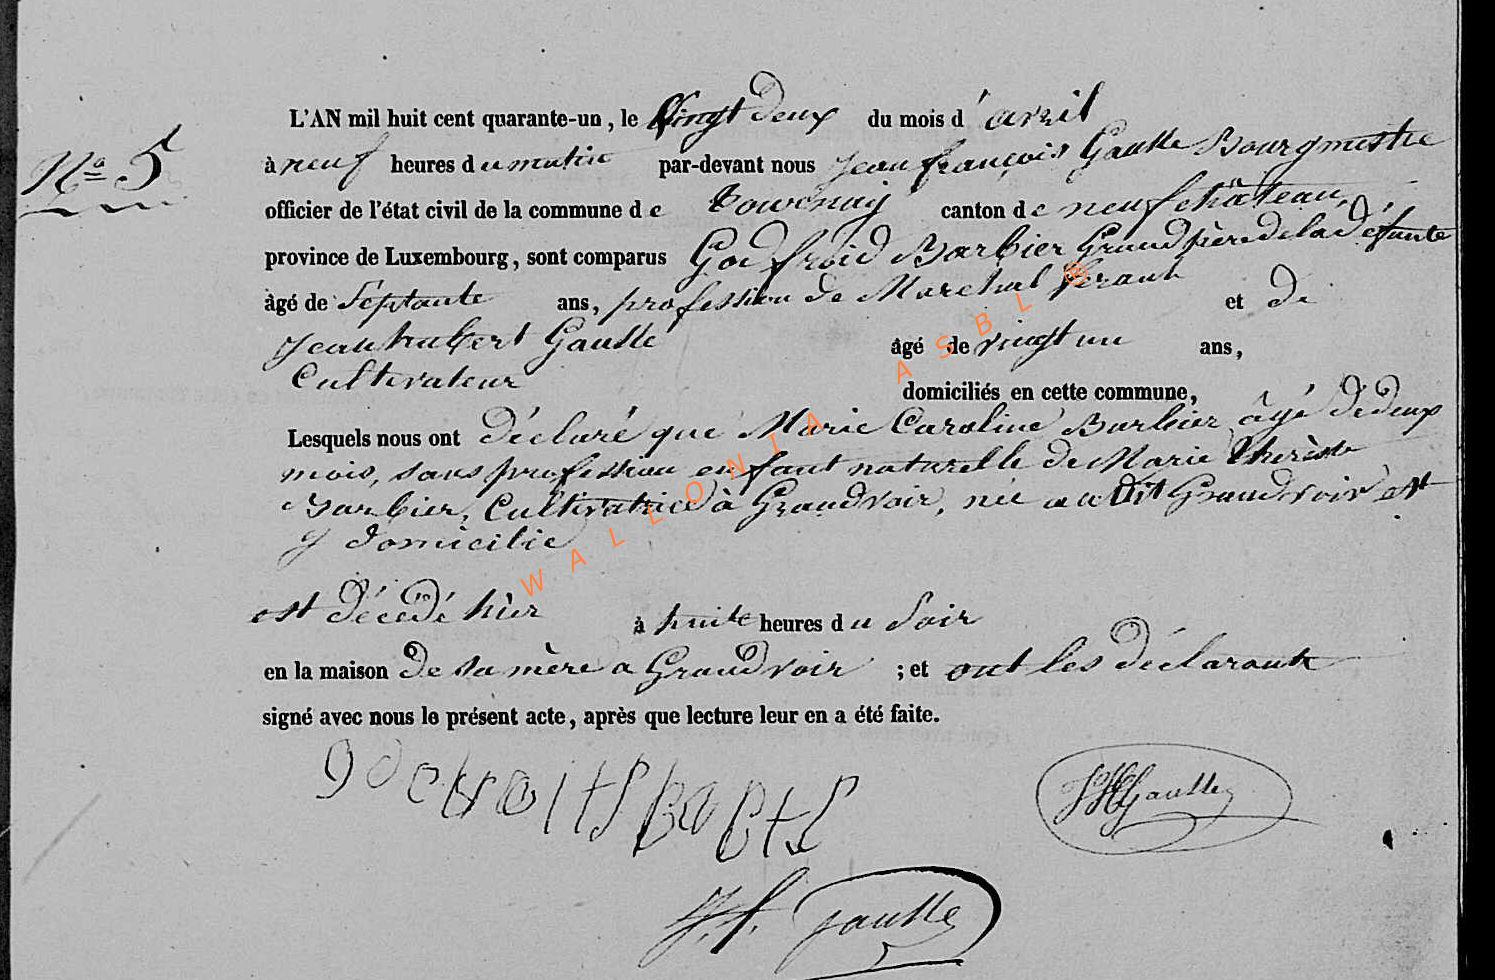 L'AN mil huit cent quarante-un, le Vingt deux du mois d'avril
N° 5
à neuf heures du matin par-devant nous Jean françois Gaulle Bourgmestre
officier de l'état civil de la commune de Tournay canton de neufchâteau,
province de Luxembourg, sont comparus Godfroid Barbier Grand père de la défunte
âgé de Septante ans, profession de Marechal ferant et de
Jean hubert Gaulle âgé de vingt un ans,
Cultivateur domiciliés en cette commune,
Lesquels nous ont déclaré que Marie Caroline Barbier âgé de deux
mois, sans profession enfant naturelle de Marie Thérèse
Barbier, Cultivatrice à Grandvoir, née au dit Grandvoir et
y domicilié
est décédé hier à huite heures du Soir
en la maison de sa mère a Grandvoir ; et ont les déclarant
signé avec nous le présent acte, après que lecture leur en a été faite.
JH Gaulle
J. f. Gaulle
WALLONIA ASBL ®